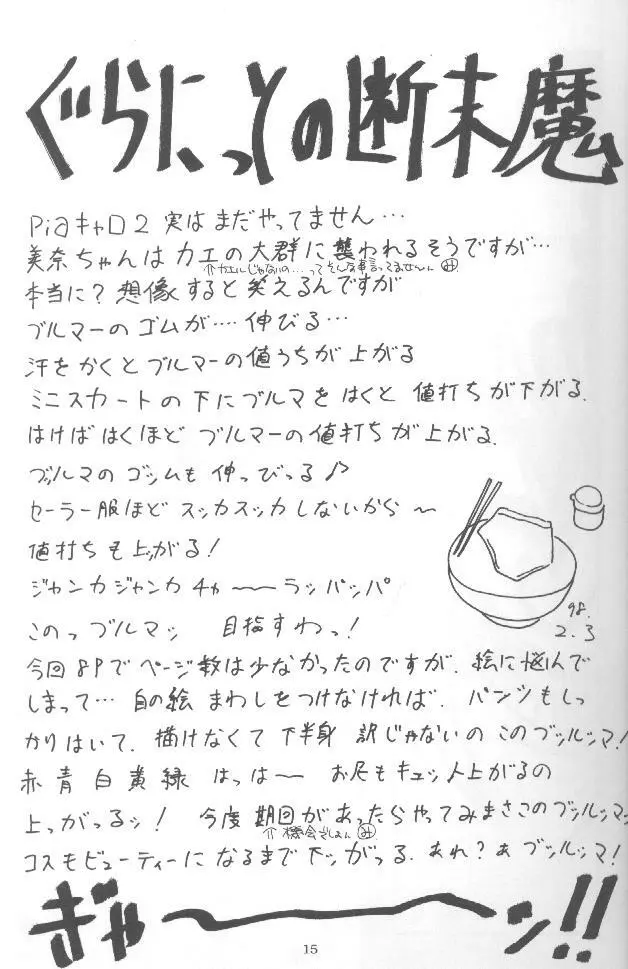 ぐらにっとの断末魔
Piaキャロ2 実はまだやってません…
美奈ちゃんは カエの大群に襲われるそうですが…
⇑カエルじゃないの…ってそんな事言ってませんん
本当に？想像すると笑えるんですが
ブルマーのゴムが…. 伸びる…
汗をかくとブルマーの値うちが上がる
ミニスカートの下にブルマをはくと 値打ちが下がる.
はけばはくほど ブルマーの値打ちが上がる.
ブッルマの ゴッムも 伸っびっる♪
セーラー服ほど スッカスッカしないから 〜
値打ちも上ッがる！
ジャンカジャンカ チャ〜〜ラッパッパ
このっ ブルマッ 目指すわっ！
今回8Pで ページ数は少なかったのですが、絵に悩んで
しまって… 自の絵 まわしをつけなければ、パンツもしっ
かりはいて、描けなくて 下半身 訳じゃないの このブッルッマ！
赤 青 白 黄 緑 はっは〜 お尻もキュット上がるの
上っがっるッ！ 今度 期回があったらやってみまさこのブッルッマッ
⇑機会でしょん
コスモビューティーに なるまで 下ッがっる. あれ？あ ブッルッマ！
ぎゃ〜〜ン!!
98.
2.3
15